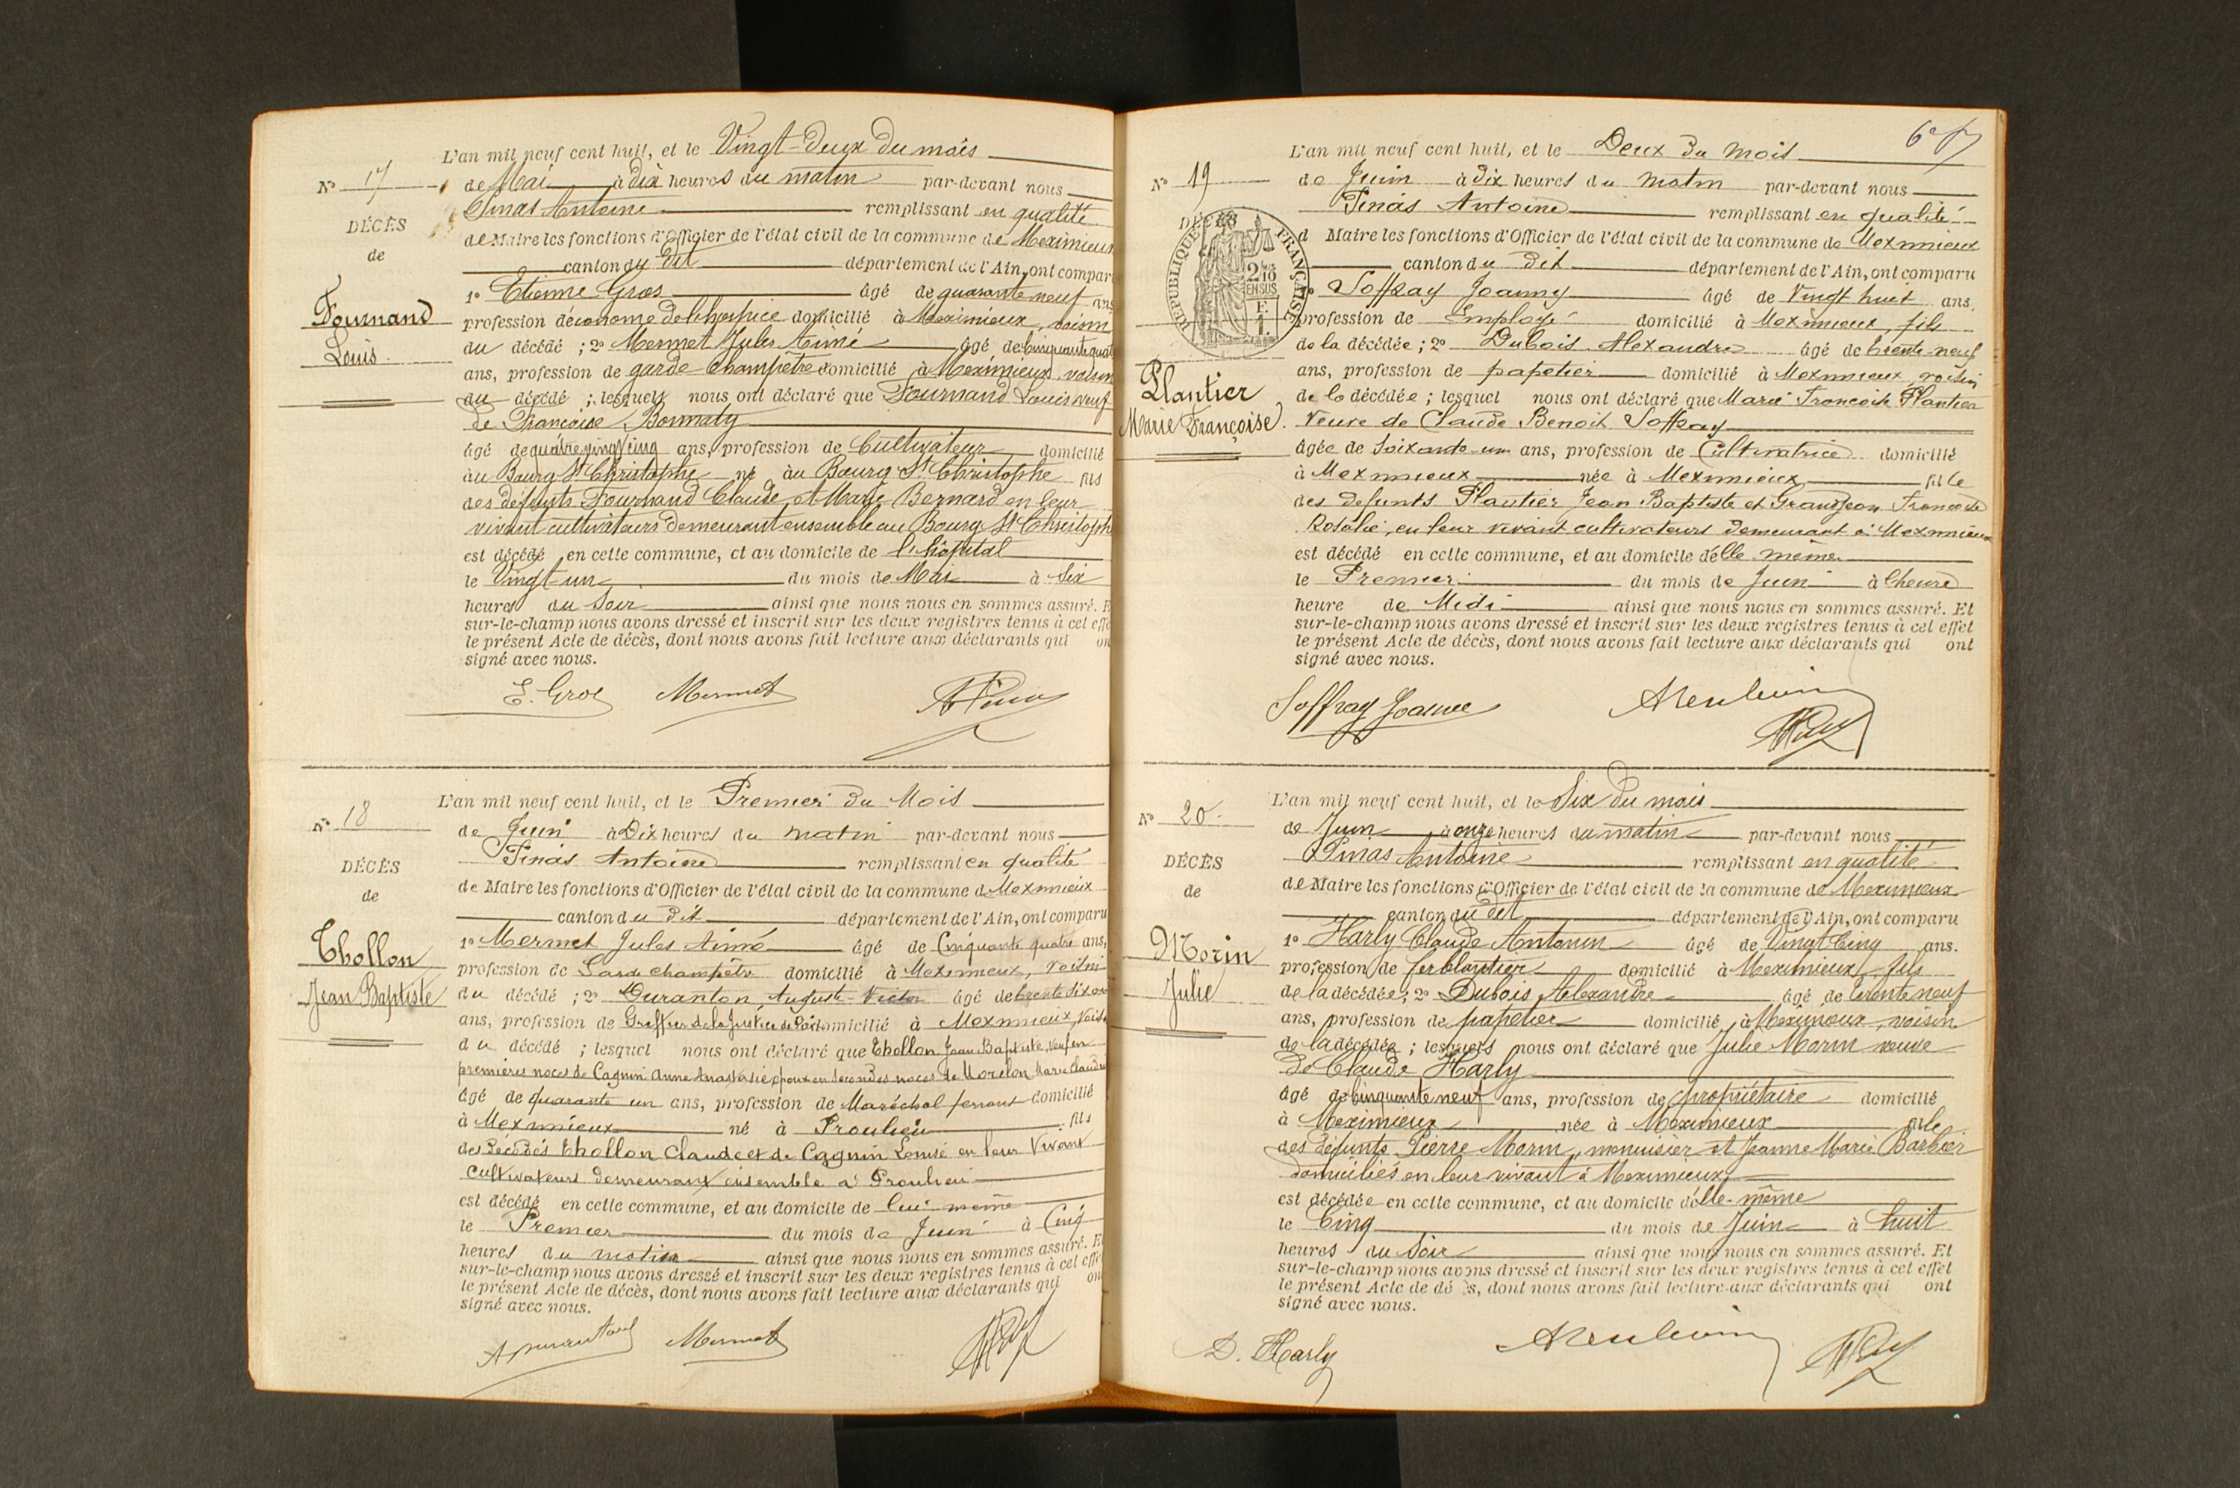 L'an mil neuf cent huit, et le Vingt-Deux du mois
N° 17 de Mai à dix heures du matin par-devant nous
Pinas Antoine remplissant en qualité
DÉCÈS
de Maire les fonctions d'Officier de l'état civil de la commune de Meximieux
de
canton du dit département de l'Ain, ont compar
1° Etienne Gros âgé de quarante neuf ans
Fournand
profession d'économe de l'hospice domicilié à Meximieux, voisin
Louis
du décédé ; 2° Mermet Jules Aimé âgé de cinquante quat
ans, profession de garde-champêtre domicilié à Meximieux voisin
du décédé ; lesquels nous ont déclaré que Fournand Louis veuf
de Françoise Bonmaty
âgé de quatre vingt cinq ans, profession de Cultivateur domicilié
au Bourg St Christophe né au Bourg St Christophe fils
des défunts Fournand Claude et Marie Bernard en leur
vivant cultivateurs demeurant ensemble au Bourg St Christoph
est décédé en cette commune, et au domicile de l'hôpital
le Vingt-un du mois de Mai à Six
heures du Soir ainsi que nous nous en sommes assuré. E
sur-le-champ nous avons dressé et inscrit sur les deux registres tenus à cet effe
le présent Acte de décès, dont nous avons fait lecture aux déclarants qui on
signé avec nous.
E. Gros Mermet
L'an mil neuf cent huit, et le Premier du Mois
N° 18
de Juin à Dix heures du matin par-devant nous
Pinas Antoine remplissant en qualité
DÉCÈS
de Maire les fonctions d'Officier de l'état civil de la commune de Meximieux
de
canton du dit département de l'Ain, ont comparu
1° Mermet Jules Aimé âgé de Cinquante quatre ans,
Thollon
profession de Garde champêtre domicilié à Meximieux, voisin
Jean Baptiste
du décédé ; 2° Duranton Auguste Victor âgé de trente
ans, profession de Greffier de la Justice de Paix domicilié à Meximieux, vois
du décédé ; lesquel nous ont déclaré que Thollon Jean Baptiste, veuf en
premières noces de Cagnin Anne Anastasie époux en secondes noces de Morelon Marie Claudine
âgé de quarante un ans, profession de Maréchal ferrant domicilié
à Meximieux né à Proulieu fils
des décédés Thollon Claude et de Cagnin Louise en leur vivant
cultivateurs demeurant ensemble à Proulieu
est décédé en cette commune, et au domicile de lui même
le Premier du mois de Juin à Cinq
heures du matin ainsi que nous nous en sommes assuré. E
sur-le-champ nous avons dressé et inscrit sur les deux registres tenus à cet effe
le présent Acte de décès, dont nous avons fait lecture aux déclarants qui on
signé avec nous.
Mermet
L'an mil neuf cent huit, et le Deux du Mois
N° 19 de Juin à Dix heures du matin par-devant nous
Pinas Antoine remplissant en qualité
DÉCÈS
d Maire les fonctions d'Officier de l'état civil de la commune de Meximieux
RÉPUBLIQUE FRANÇAISE
2/10 EN SUS
F. 1.
canton du dit département de l'Ain, ont comparu
Soffray Joanny âgé de Vingt huit ans.
profession de Employé domicilié à Meximieux, fils
de la décédée ; 2° Dubois Alexandre âgé de trente-neuf
ans, profession de papetier domicilié à Meximieux, voisin
Plantier
Marie Françoise.
de la décédée ; lesquel nous ont déclaré que Marie Françoise Plantier
Veuve de Claude Benoit Soffray
âgée de soixante-un ans, profession de Cultivatrice domicilié
à Meximieux née à Meximieux fille
des défunts Plantier Jean Baptiste et Grandjean Françoise
Rosalie, en leur vivant cultivateurs demeurant à Meximieux
est décédé en cette commune, et au domicile d'elle même
le Premier du mois de Juin à l'heure
heure de Midi ainsi que nous nous en sommes assuré. Et
sur-le-champ nous avons dressé et inscrit sur les deux registres tenus à cet effet
le présent Acte de décès, dont nous avons fait lecture aux déclarants qui ont
signé avec nous.
Soffray Joanne
L'an mil neuf cent huit, et le Six du mois
N° 20.
de Juin à onze heures du matin par-devant nous
Pinas Antoine remplissant en qualité
DÉCÈS
de Maire les fonctions d'Officier de l'état civil de la commune de Meximieux
de
canton du dit département de l'Ain, ont comparu
1° Harly Claude Antonin âgé de Vingt Cinq ans.
Morin
profession de ferblantier domicilié à Meximieux, fils
Julie
de la décédée ; 2° Dubois Alexandre âgé de trente neuf
ans, profession de papetier domicilié à Meximieux, voisin
de la décédée ; lesquels nous ont déclaré que Julie Morin veuve
de Claude Harly
âgé de cinquante neuf ans, profession de propriétaire domicilié
à Meximieux née à Meximieux fille
des défunts Pierre Morin, menuisier et Jeanne Marie Barbier
domiciliés en leur vivant à Meximieux
est décédée en cette commune, et au domicile d'elle-même
le Cinq du mois de Juin à huit
heures du Soir ainsi que nous nous en sommes assuré. Et
sur-le-champ nous avons dressé et inscrit sur les deux registres tenus à cet effet
le présent Acte de décès, dont nous avons fait lecture aux déclarants qui ont
signé avec nous.
D. Harly